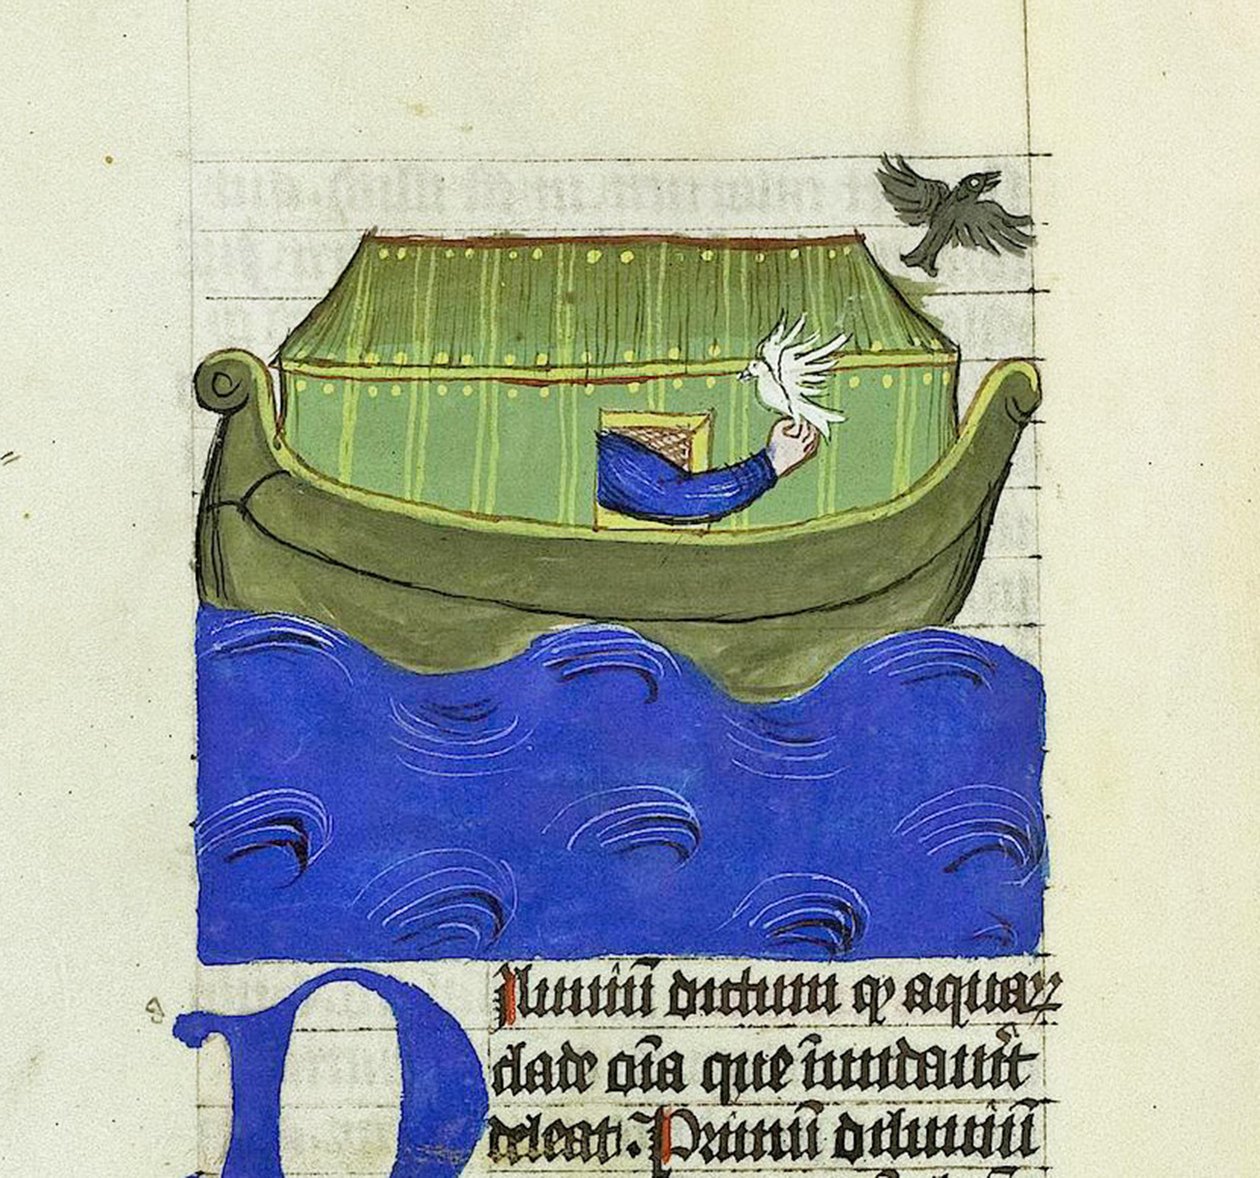 Diluuiū dictum ꝙ aquaꝝ
clade oīa que īundau͛it
deleat. Primū diluuiū